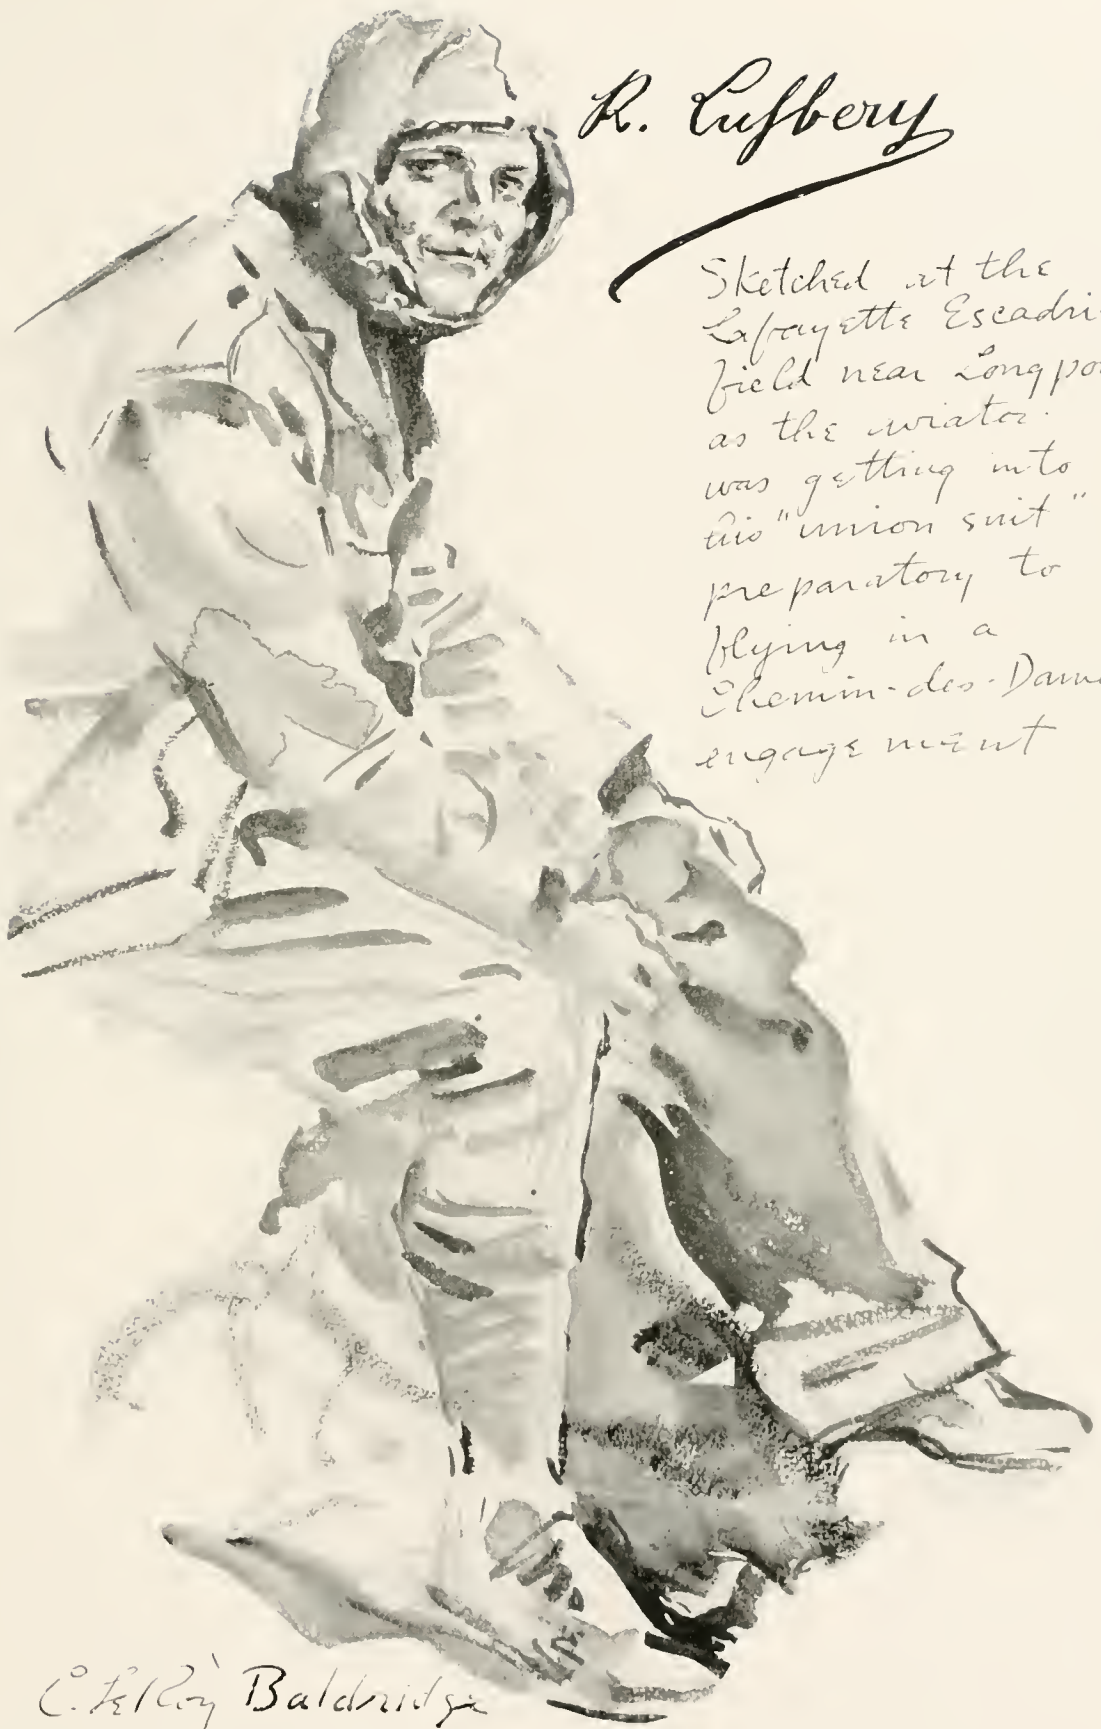 R. Lufbery
Sketched at the
Lafayette Escadri
field near Longpo
as the aviator
was getting into
his "union suit"
preparatory to
flying in a
Chemin-des-Dame
engagement
C. LeRoy Baldridge